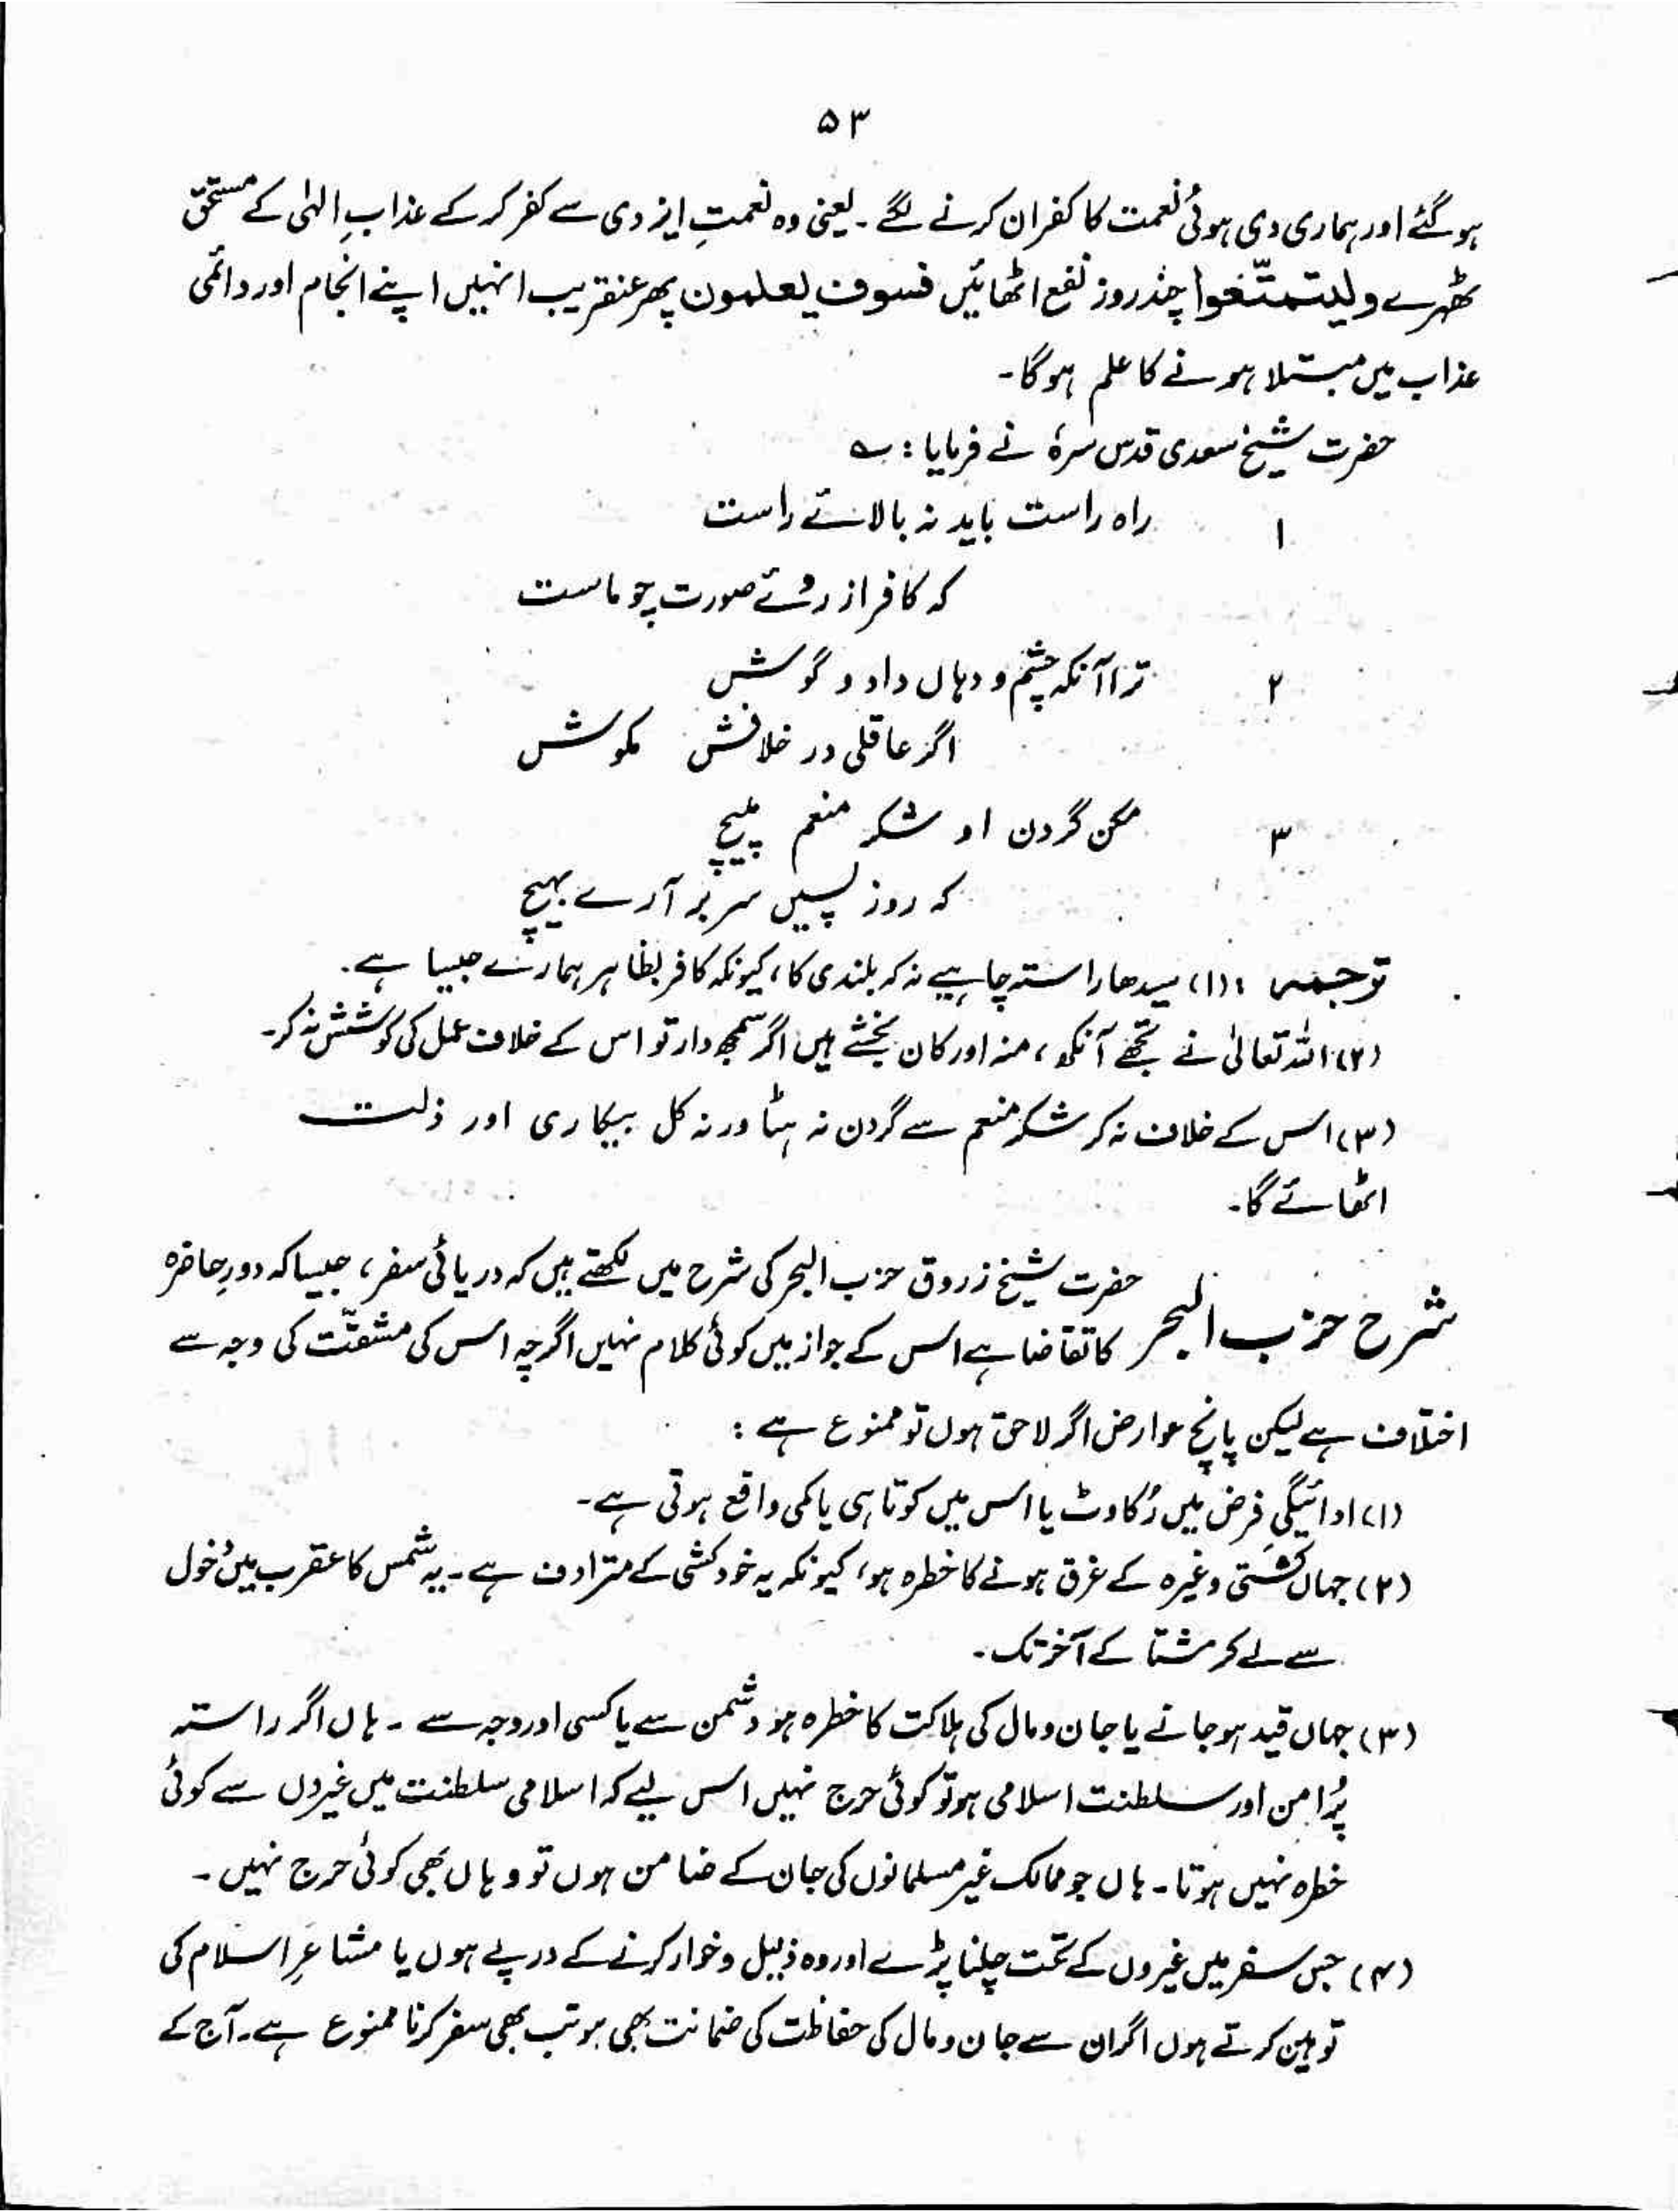 ۵۳
ہو گئے اور ہماری دی ہوئی نعمت کا کفران کرنے لگے۔ یعنی وہ نعمتِ ایزدی سے کفر کر کے عذابِ الہٰی کے مستحق
ٹھہرے ولیتمتّعوا چند روز نفع اٹھائیں فسوف یعلمون پھر عنقریب انہیں اپنے انجام اور دائمی
عذاب میں مبتلا ہونے کا علم ہو گا۔
حضرت شیخ سعدی قدس سرہٗ نے فرمایا : ؎
۱ راہ راست باید نہ بالائے راست
کہ کافر از روئے صورت چو ماست
۲ ترا آنکہ چشم و دہاں داد و گوش
اگر عاقلی در خلافش مکوش
۳ مکن گردن او شکر منعم پلیچ
کہ روز پسیں سر بر آرے بہیچ
ترجمہ : (۱) سیدھا راستہ چاہیے نہ کہ بلندی کا، کیونکہ کافر بظاہر ہمارے جیسا ہے۔
(۲) اللہ تعالیٰ نے تجھے آنکھ، منہ اور کان بخشے ہیں اگر سمجھ دار تو اس کے خلاف عمل کی کوشش نہ کر۔
(۳) اس کے خلاف نہ کر شکر منعم سے گردن نہ ہٹا ورنہ کل بیکاری اور ذلت
اٹھائے گا۔
شرح حزب البحر حضرت شیخ زروق حزب البحر کی شرح میں لکھتے ہیں کہ دریائی سفر، جیسا کہ دورِ حاضرہ
کا تقاضا ہے اس کے جواز میں کوئی کلام نہیں اگرچہ اس کی مشقّت کی وجہ سے
اختلاف ہے لیکن پانچ عوارض اگر لاحق ہوں تو ممنوع ہے :
(۱) ادائیگیِ فرض میں رُکاوٹ یا اس میں کوتاہی یا کمی واقع ہوتی ہے۔
(۲) جہاں کشتی وغیرہ کے غرق ہونے کا خطرہ ہو، کیونکہ یہ خودکشی کے مترادف ہے۔ یہ شمس کا عقرب میں دُخول
سے لے کر مشتا کے آخر تک۔
(۳) جہاں قید ہو جانے یا جان و مال کی ہلاکت کا خطرہ ہو دشمن سے یا کسی اور وجہ سے ۔ ہاں اگر راستہ
پُرامن اور سلطنت اسلامی ہو تو کوئی حرج نہیں اس لیے کہ اسلامی سلطنت میں غیروں سے کوئی
خطرہ نہیں ہوتا۔ ہاں جو ممالک غیر مسلمانوں کی جان کے ضامن ہوں تو وہاں بھی کوئی حرج نہیں۔
(۴) جس سفر میں غیروں کے تحت چلنا پڑے اور وہ ذلیل و خوار کرنے کے درپے ہوں یا مشاعرِ اسلام کی
توہین کرتے ہوں اگر ان سے جان و مال کی حفاظت کی ضمانت بھی ہو تب بھی سفر کرنا ممنوع ہے۔ آج کے